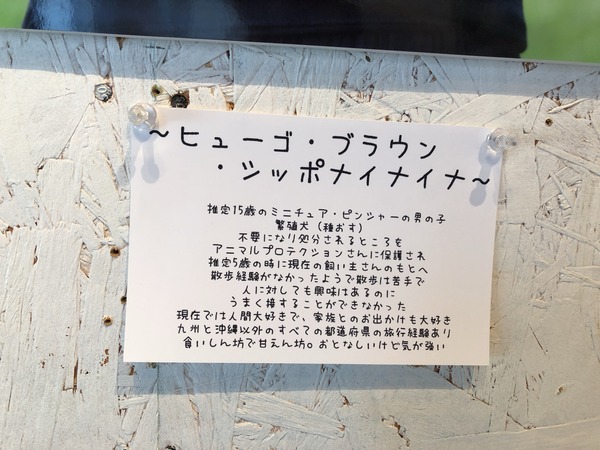 ～ヒューゴ・ブラウン
・シッポナイナイナ～
推定15歳のミニチュア・ピンシャーの男の子
繁殖犬（種おす）
不要になり処分されるところを
アニマルプロテクションさんに保護され
推定5歳の時に現在の飼い主さんのもとへ
散歩経験がなかったようで散歩は苦手で
人に対しても興味はあるのに
うまく接することができなかった
現在では人間大好きで、家族とのお出かけも大好き
九州と沖縄以外のすべての都道府県の旅行経験あり
食いしん坊で甘えん坊。おとなしいけど気が強い